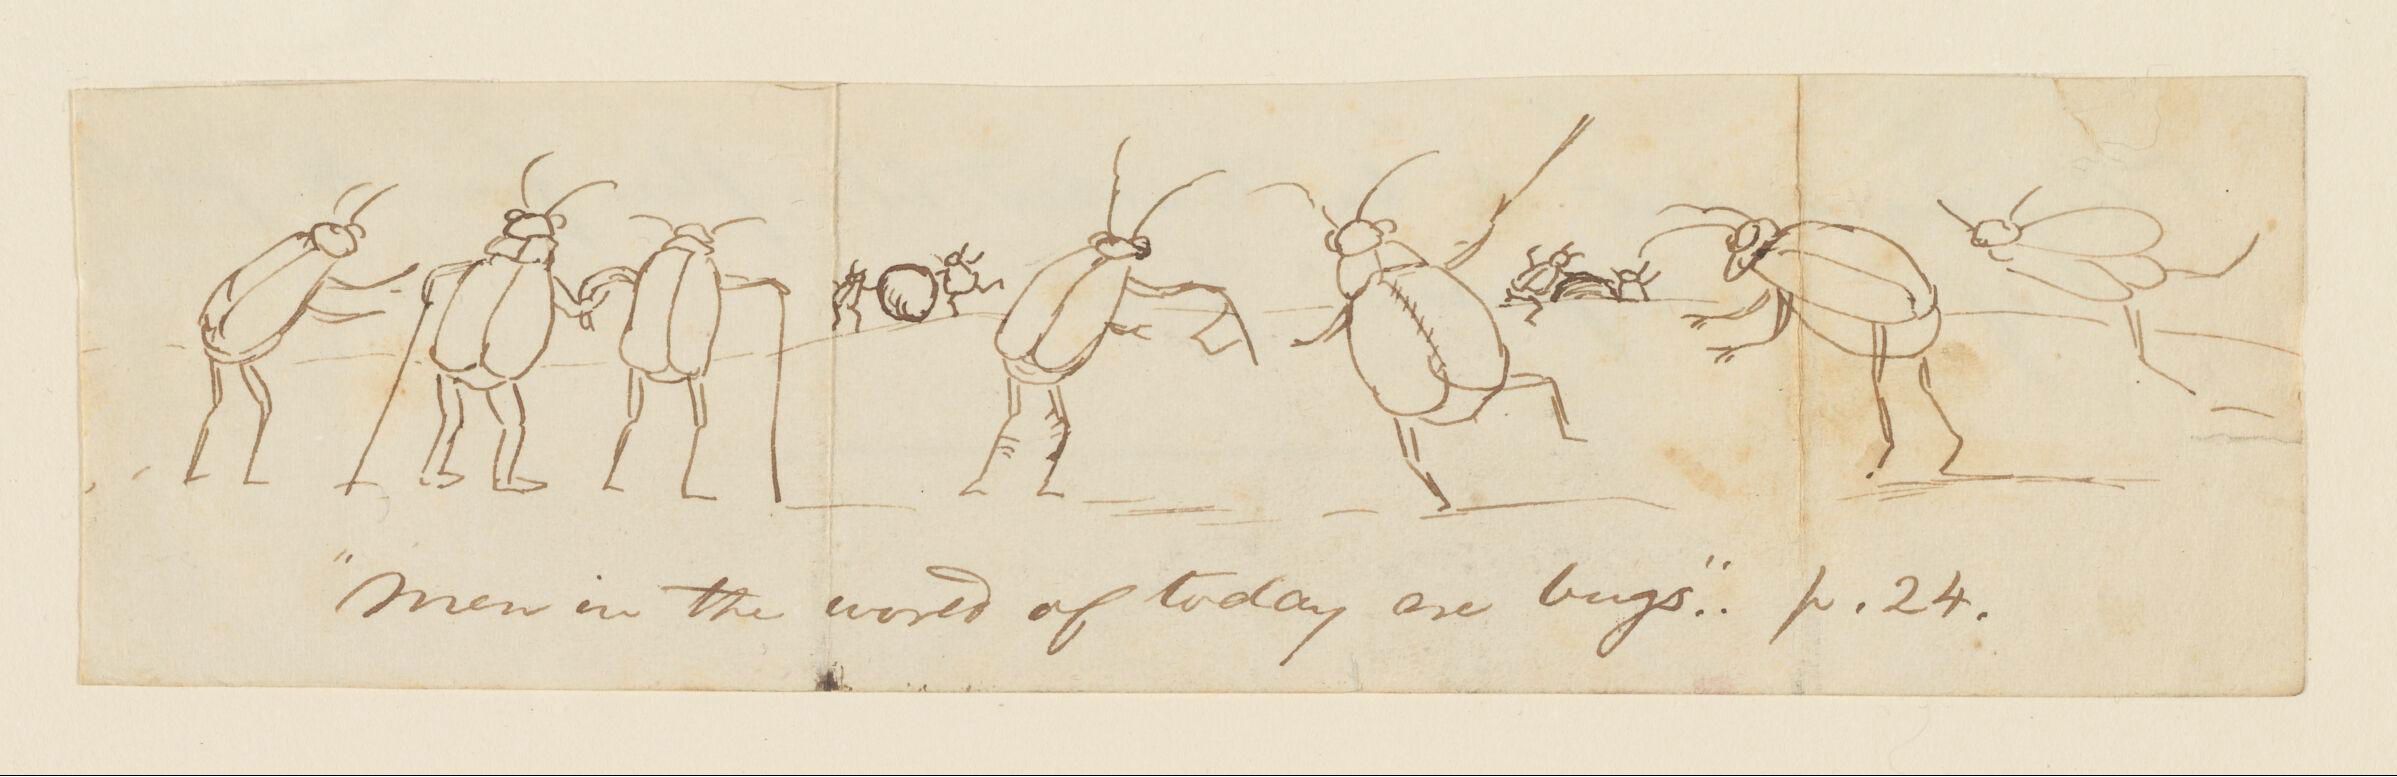 "Men in the world of today are bugs". p. 24.